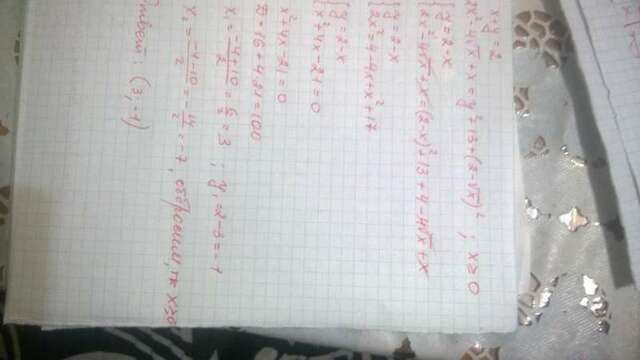 x+y=2
2x²-4√x+x=y²+13+(2-√x)² ; x≥0
{ y=2-x
{ 2x²-4√x+x=(2-x)²+13+4-4√x+x
{ y=2-x
{ 2x²=4-4x+x²+17
{ y=2-x
{ x²+4x-21=0
x²+4x-21=0
D=16+4·21=100
x₁=(-4+10)/2=6/2=3 ; y₁=2-3=-1
x₂=(-4-10)/2=-14/2=-7, отбросим, тк x≥0
Ответ: (3;-1)